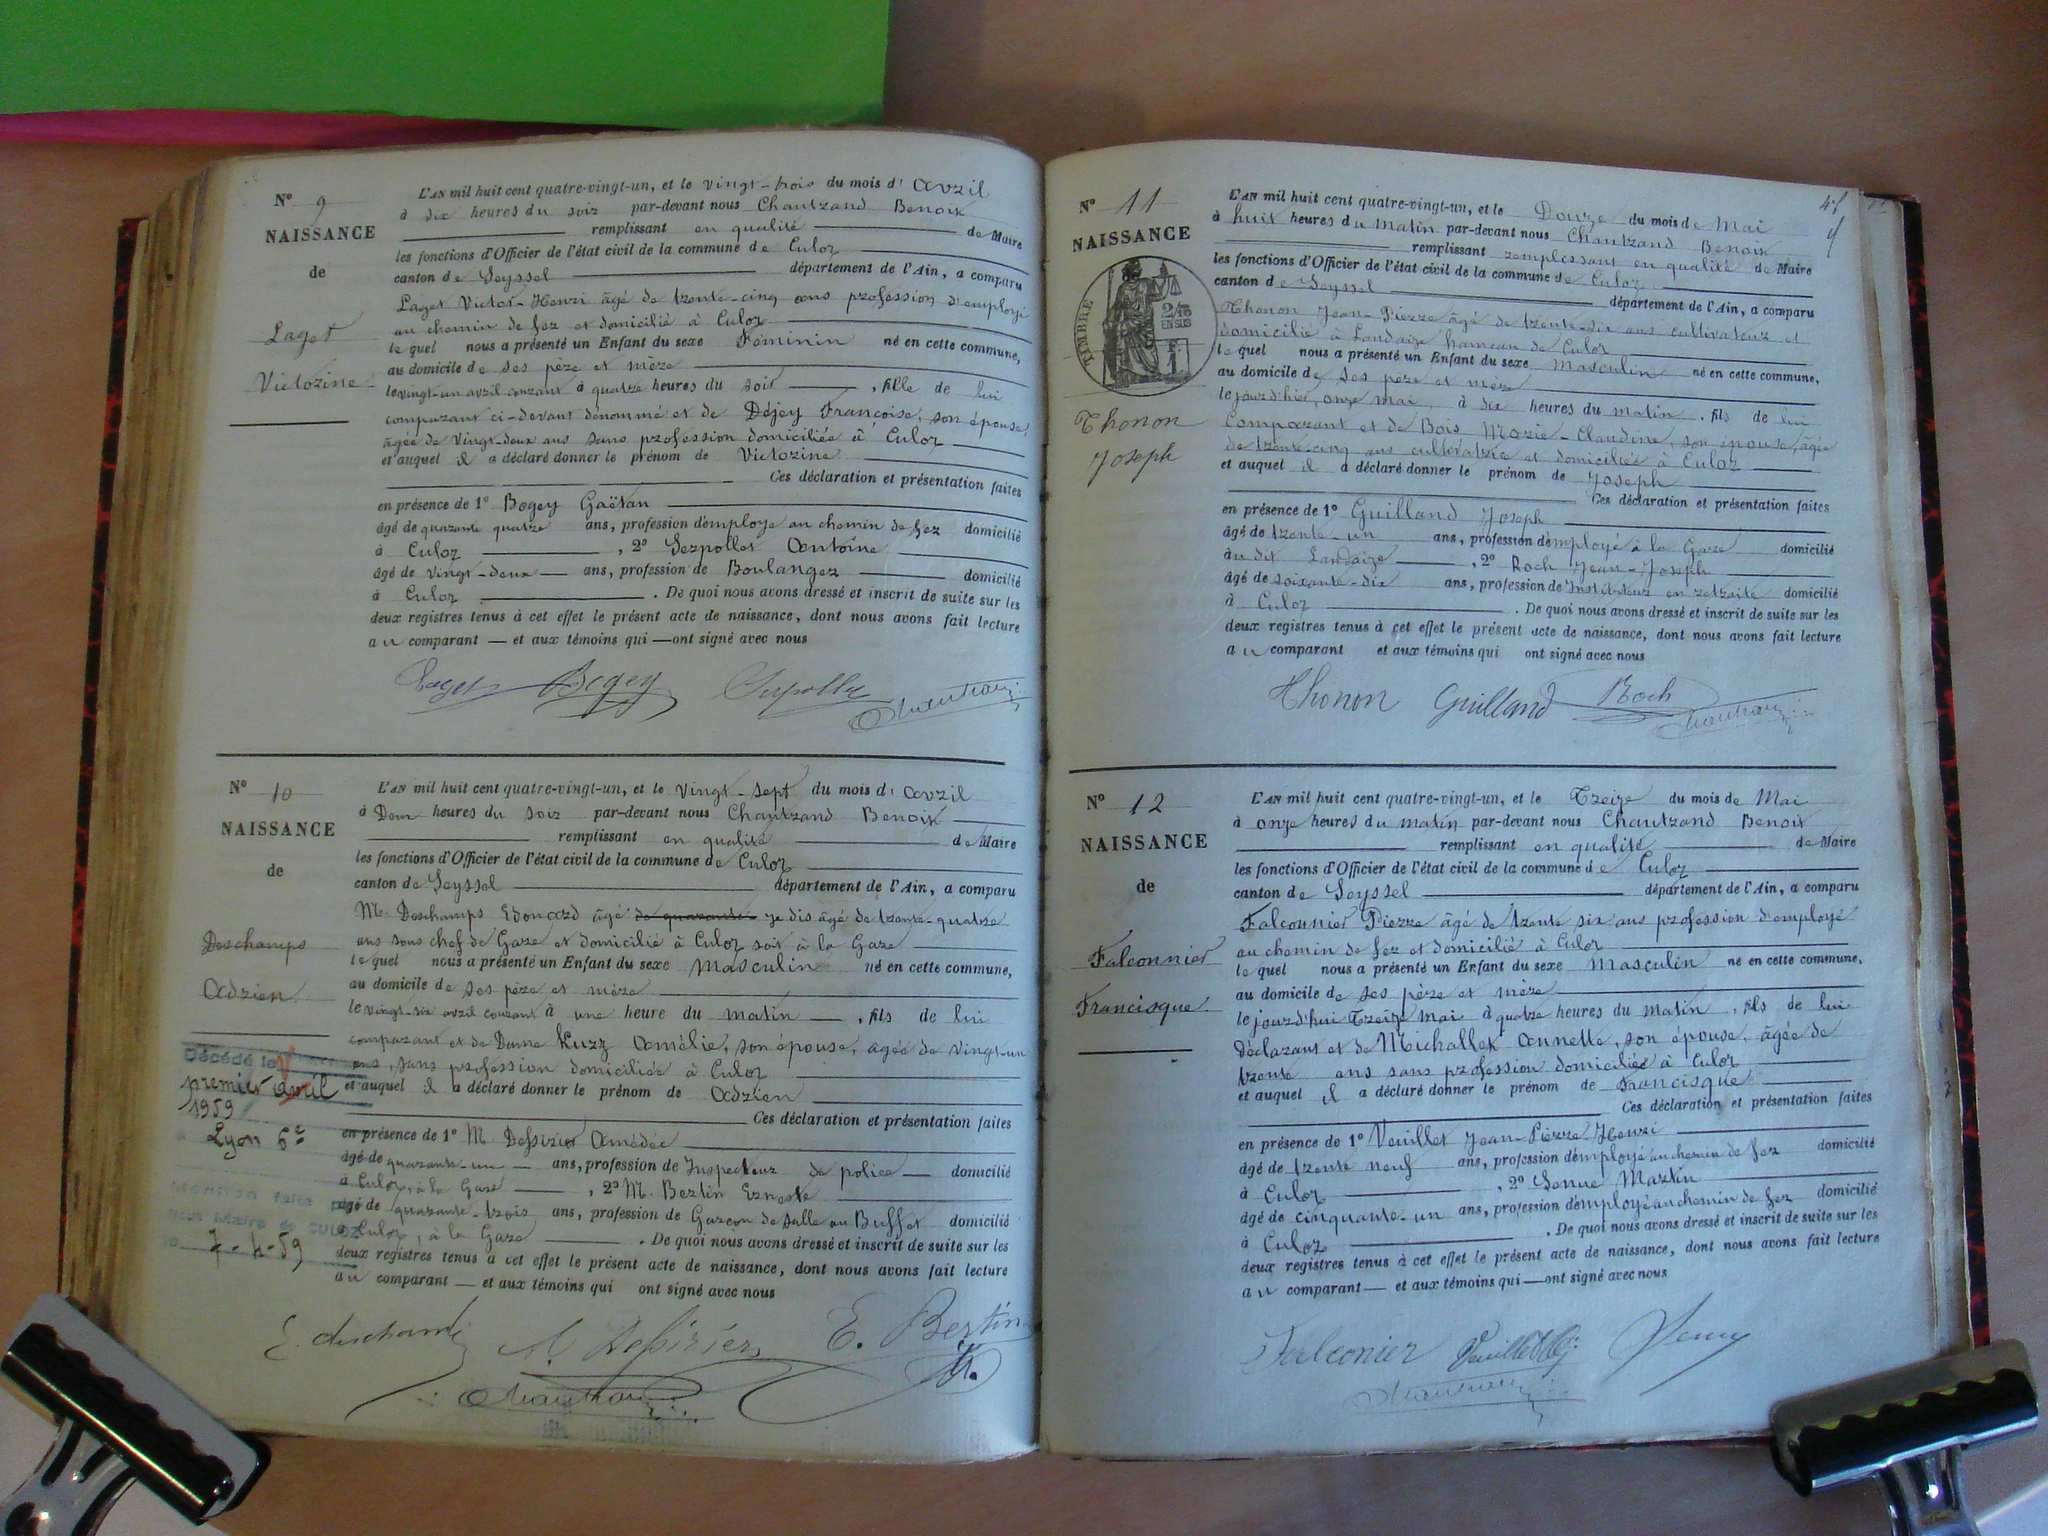 N° 9
NAISSANCE
de
Laget
Victorine
L'AN mil huit cent quatre-vingt-un, et le vingt-trois du mois d'Avril
à six heures du soir par-devant nous Chautrand Benoix
remplissant en qualité de Maire
les fonctions d'Officier de l'état civil de la commune de Culoz
canton de Seyssel département de l'Ain, a comparu
Laget Victor-Henri âgé de trente-cinq ans profession d'employé
au chemin de fer et domicilié à Culoz
lequel nous a présenté un Enfant du sexe Féminin né en cette commune,
au domicile de ses père et mère
le vingt-un avril courant à quatre heures du soir, fille de lui
comparant ci-devant dénommé et de Déjey Françoise, son épouse,
âgée de Vingt-deux ans sans profession domiciliée à Culoz
et auquel il a déclaré donner le prénom de Victorine
Ces déclaration et présentation faites
en présence de 1° Bogey Gaëtan
âgé de quarante quatre ans, profession d'employé au chemin de fer domicilié
à Culoz, 2° Serpollet Antoine
âgé de vingt-deux ans, profession de Boulanger domicilié
à Culoz. De quoi nous avons dressé et inscrit de suite sur les
deux registres tenus à cet effet le présent acte de naissance, dont nous avons fait lecture
au comparant et aux témoins qui ont signé avec nous
Laget Bogey Serpollet Chautrand
N° 10
NAISSANCE
de
Deschamps
Adrien
Décédé le
premier avril
1959
à Lyon 6e
Mention faite par
nous Maire de CULOZ
le 7-4-59
L'AN mil huit cent quatre-vingt-un, et le Vingt-sept du mois d'Avril
à Deux heures du soir par-devant nous Chautrand Benoix
remplissant en qualité de Maire
les fonctions d'Officier de l'état civil de la commune de Culoz
canton de Seyssel département de l'Ain, a comparu
M. Deschamps Edouard âgé de quarante je dis âgé de trente-quatre
ans sous chef de Gare et domicilié à Culoz soit à la Gare
lequel nous a présenté un Enfant du sexe Masculin né en cette commune,
au domicile de ses père et mère
le vingt-six avril courant à une heure du matin, fils de lui
comparant et de Dame Kuzz Amélie, son épouse, âgée de vingt-un
ans, sans profession domiciliée à Culoz
et auquel il a déclaré donner le prénom de Adrien
Ces déclaration et présentation faites
en présence de 1° M. Desirier Amédée
âgé de quarante-un ans, profession de Inspecteur de police domicilié
à Culoz, à la Gare, 2° M. Bertin Erneste
âgé de quarante-trois ans, profession de Garçon de salle au Buffet domicilié
à Culoz, à la Gare. De quoi nous avons dressé et inscrit de suite sur les
deux registres tenus à cet effet le présent acte de naissance, dont nous avons fait lecture
au comparant et aux témoins qui ont signé avec nous
E. deschamps A. Desirier E. Bertin
Chautrand
4
N° 11
NAISSANCE
TIMBRE
2/10
EN SUS
Thonon
Joseph
L'AN mil huit cent quatre-vingt-un, et le Douze du mois de Mai
à huit heures du matin par-devant nous Chautrand Benoix
remplissant remplissant en qualité de Maire
les fonctions d'Officier de l'état civil de la commune de Culoz
canton de Seyssel département de l'Ain, a comparu
Thonon Jean-Pierre âgé de trente-six ans cultivateur et
domicilié à Landaize hameau de Culoz
lequel nous a présenté un Enfant du sexe Masculin né en cette commune,
au domicile de ses père et mère
le jour d'hier, onze mai, à dix heures du matin, fils de lui
Comparant et de Bois Marie-Claudine, son épouse, âgée
de trente-cinq ans cultivatrice et domiciliée à Culoz
et auquel il a déclaré donner le prénom de Joseph
Ces déclaration et présentation faites
en présence de 1° Guilland Joseph
âgé de trente-un ans, profession d'employé à la Gare domicilié
au dit Landaize, 2° Roch Jean-Joseph
âgé de soixante-dix ans, profession de Instituteur en retraite domicilié
à Culoz. De quoi nous avons dressé et inscrit de suite sur les
deux registres tenus à cet effet le présent acte de naissance, dont nous avons fait lecture
au comparant et aux témoins qui ont signé avec nous
Thonon Guilland Roch Chautrand
N° 12
NAISSANCE
de
Falconnier
Francisque
L'AN mil huit cent quatre-vingt-un, et le Treize du mois de Mai
à onze heures du matin par-devant nous Chautrand Benoix
remplissant en qualité de Maire
les fonctions d'Officier de l'état civil de la commune de Culoz
canton de Seyssel département de l'Ain, a comparu
Falconnier Pierre âgé de trente six ans profession d'employé
au chemin de fer et domicilié à Culoz
lequel nous a présenté un Enfant du sexe Masculin né en cette commune,
au domicile de ses père et mère
le jourd'hui Treize Mai à quatre heures du matin, fils de lui
déclarant et de Michallet Annette, son épouse, âgée de
trente ans sans profession domiciliée à Culoz
et auquel il a déclaré donner le prénom de Francisque
Ces déclaration et présentation faites
en présence de 1° Veuillet Jean-Pierre Henri
âgé de trente neuf ans, profession d'employé au chemin de fer domicilié
à Culoz, 2° Senue Martin
âgé de cinquante-un ans, profession d'employé au chemin de fer domicilié
à Culoz. De quoi nous avons dressé et inscrit de suite sur les
deux registres tenus à cet effet le présent acte de naissance, dont nous avons fait lecture
au comparant et aux témoins qui ont signé avec nous
Falconier Veuillet
Chautrand